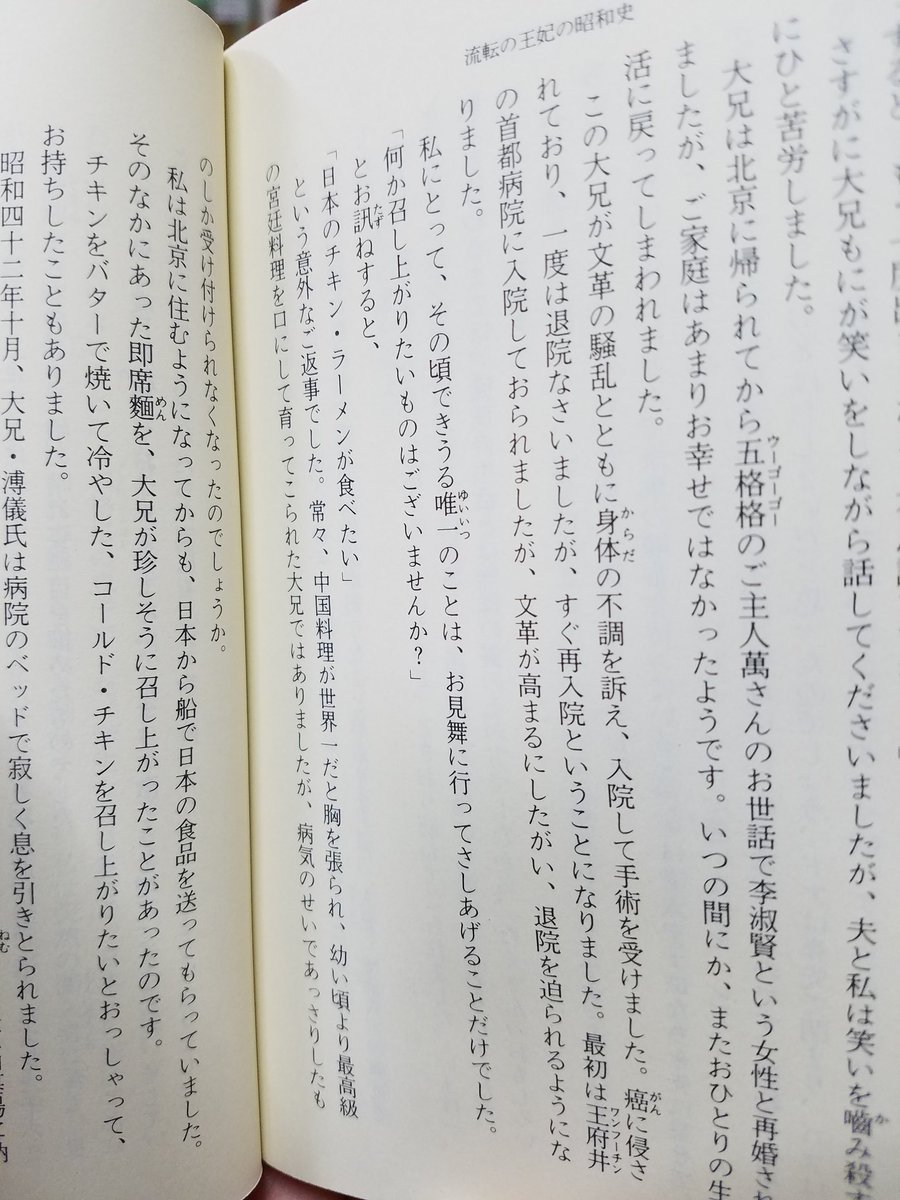 流転の王妃の昭和史
さすがに大兄もにが笑いをしながら話してくださいましたが、夫と私は笑いを嚙み殺
にひと苦労しました。
大兄は北京に帰られてから五格格のご主人萬さんのお世話で李淑賢という女性と再婚され
ましたが、ご家庭はあまりお幸せではなかったようです。いつの間にか、またおひとりの生
活に戻ってしまわれました。
この大兄が文革の騒乱とともに身体の不調を訴え、入院して手術を受けました。癌に侵さ
れており、一度は退院なさいましたが、すぐ再入院ということになりました。最初は王府井
の首都病院に入院しておられましたが、文革が高まるにしたがい、退院を迫られるようにな
りました。
私にとって、その頃できうる唯一のことは、お見舞に行ってさしあげることだけでした。
「何か召し上がりたいものはございませんか?」
とお訊ねすると、
「日本のチキン・ラーメンが食べたい」
という意外なご返事でした。常々、中国料理が世界一だと胸を張られ、幼い頃より最高級
の宮廷料理を口にして育ってこられた大兄ではありましたが、病気のせいであっさりしたも
のしか受け付けられなくなったのでしょうか。
私は北京に住むようになってからも、日本から船で日本の食品を送ってもらっていました。
そのなかにあった即席麵を、大兄が珍しそうに召し上がったことがあったのです。
チキンをバターで焼いて冷やした、コールド・チキンを召し上がりたいとおっしゃって、
お持ちしたこともありました。
昭和四十二年十月、大兄・溥儀氏は病院のベッドで寂しく息を引きとられました。